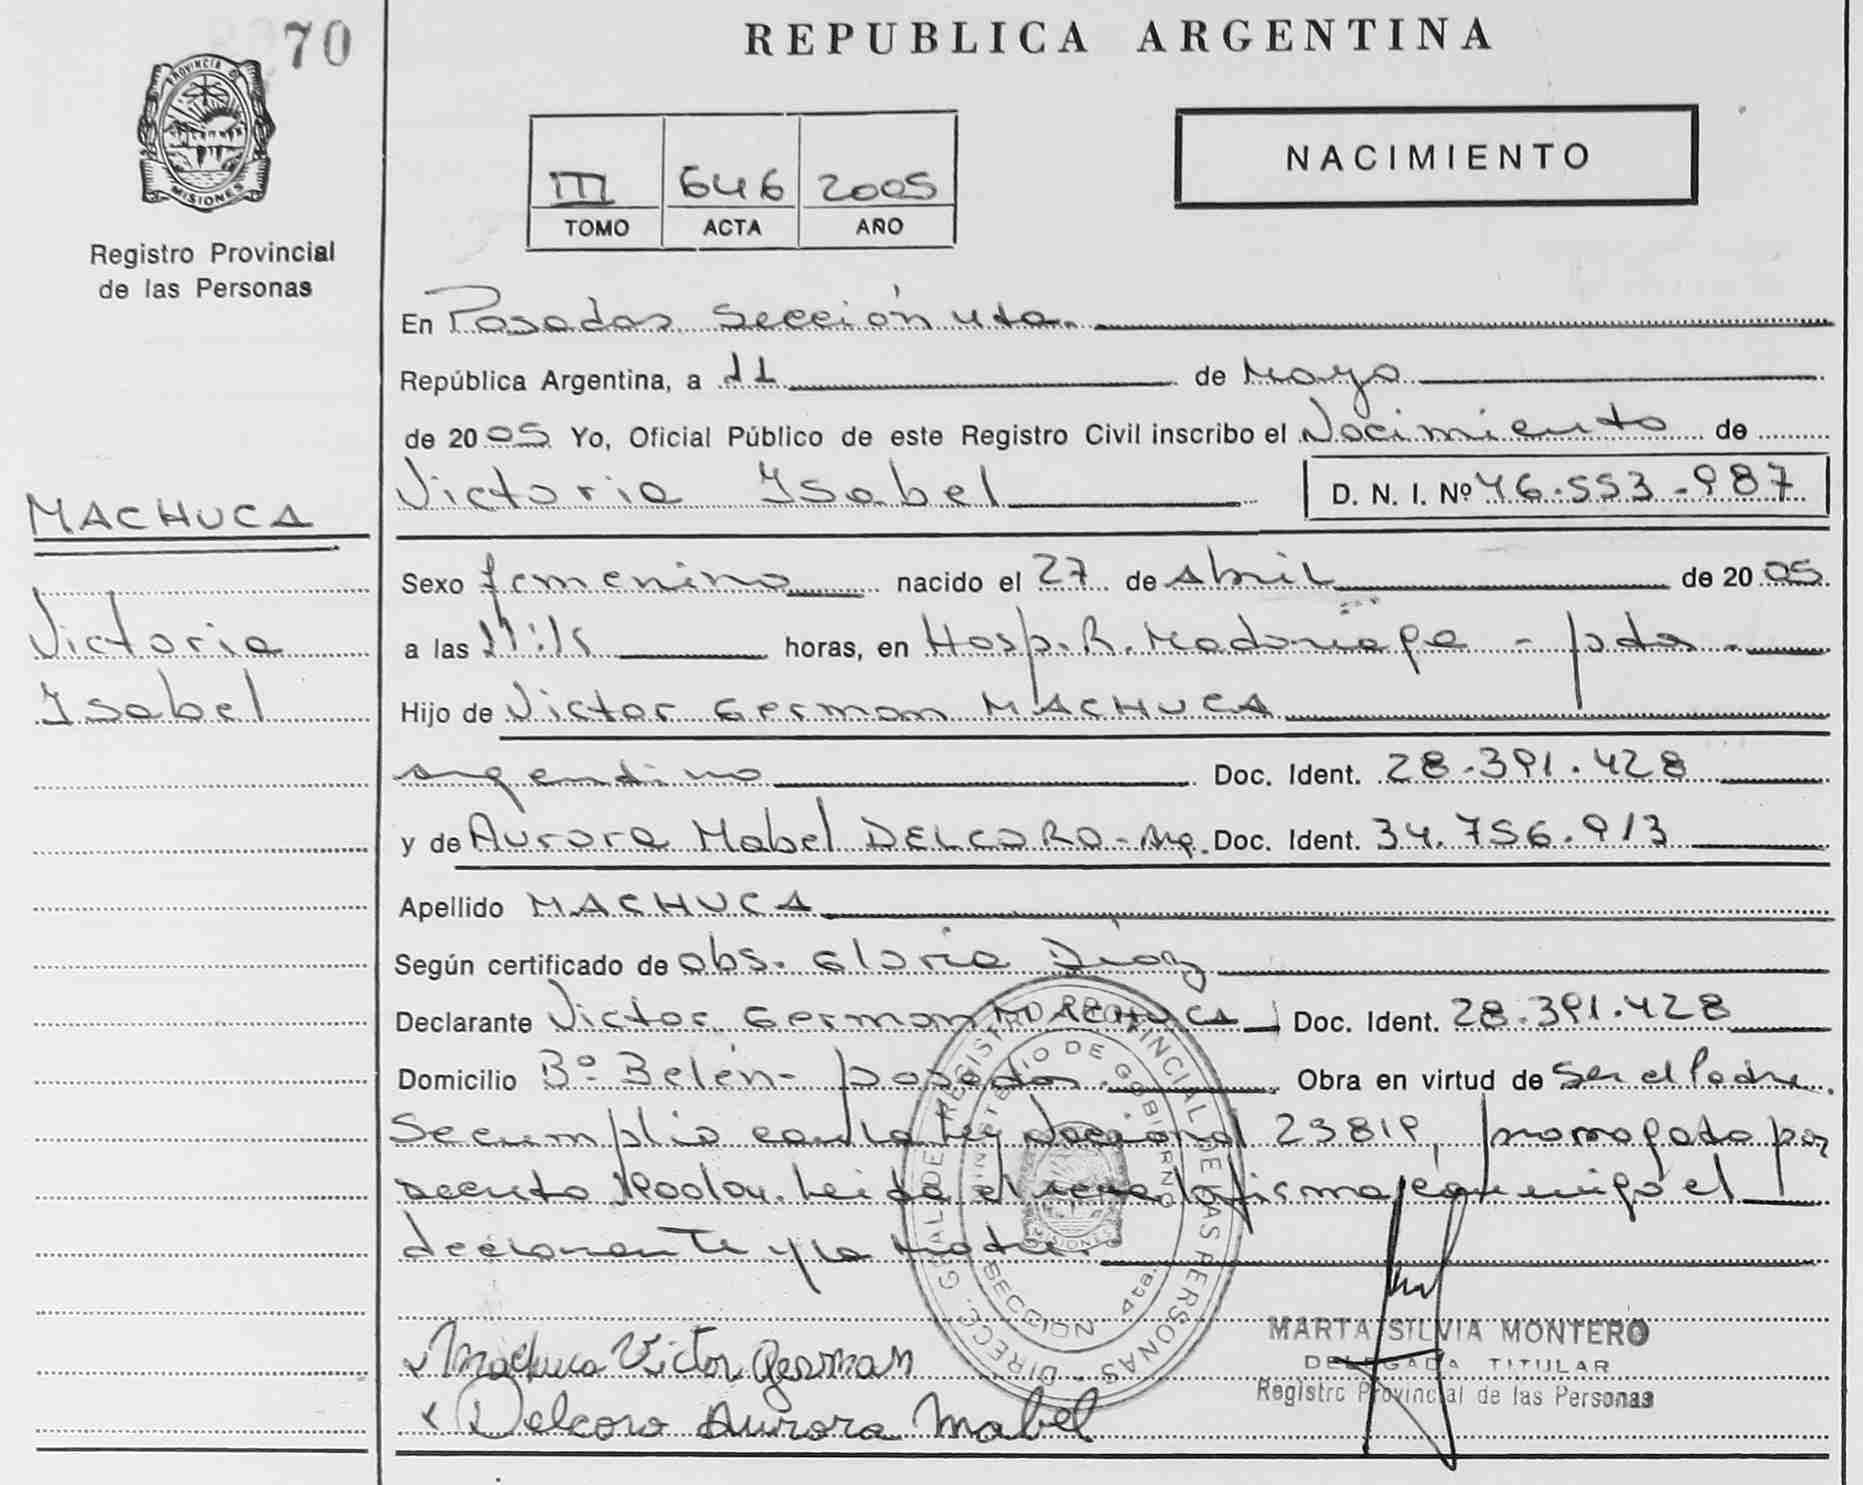 70
REPUBLICA ARGENTINA
PROVINCIA DE
MISIONES
Registro Provincial
de las Personas
III 646 2005
TOMO ACTA AÑO
NACIMIENTO
En Posadas Sección 4ta.
República Argentina, a 11 de Mayo
de 2005 Yo, Oficial Público de este Registro Civil inscribo el Nacimiento de
Victoria Isabel D. N. I. Nº 46.553.987
MACHUCA
Victoria
Isabel
Sexo femenino nacido el 27 de Abril de 2005.
a las 11:15 horas, en Hosp. R. Madariaga - pdas.
Hijo de Victor German MACHUCA
argentino Doc. Ident. 28.391.428
y de Aurora Mabel DELCORO - Arg. Doc. Ident. 34.756.913
Apellido MACHUCA
Según certificado de obs. Gloria Díaz
Declarante Victor German MACHUCA Doc. Ident. 28.391.428
Domicilio Bº Belén - posadas. Obra en virtud de ser el Padre.
Se cumplio con la ley Nacional 23819, prorrogado por
decreto Leida el acta la firma conmigo el
declarante y la madre.
DIRECC. GRAL. DE REGISTRO PROVINCIAL DE LAS PERSONAS
MINISTERIO DE GOBIERNO
MISIONES
SECCION 4ta.
MARTA SILVIA MONTERO
DELEGADA TITULAR
Registro Provincial de las Personas
x Machuca Victor German
x Delcoro Aurora Mabel